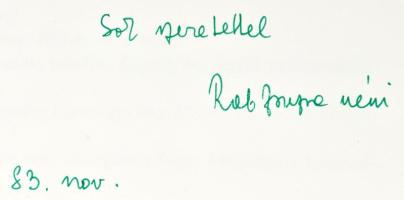 Sok szeretettel
Rab Zsuzsa néni
83. nov.